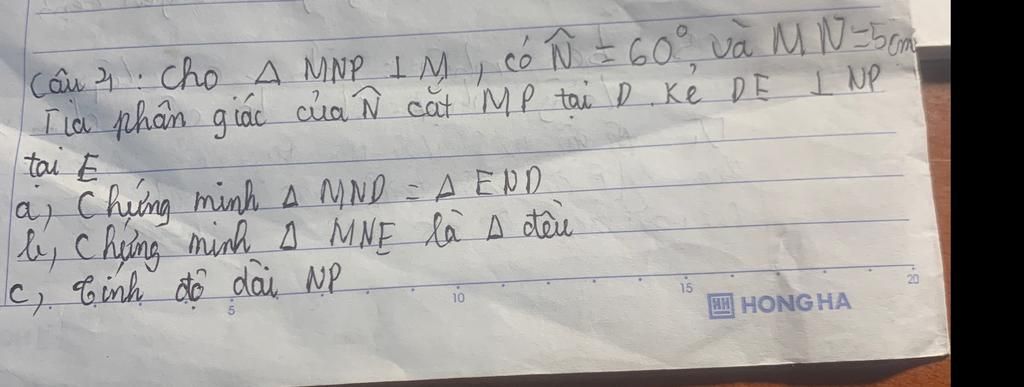 Câu 4: Cho Δ MNP ⊥ M, có N̂ = 60° và MN=5cm
Tia phân giác của N̂ cắt MP tại D. Kẻ DE ⊥ NP
tại E
a, Chứng minh Δ MND = Δ END
b, Chứng minh Δ MNE là Δ đều
c, tính độ dài NP
5 10 15 20
HH HONG HA